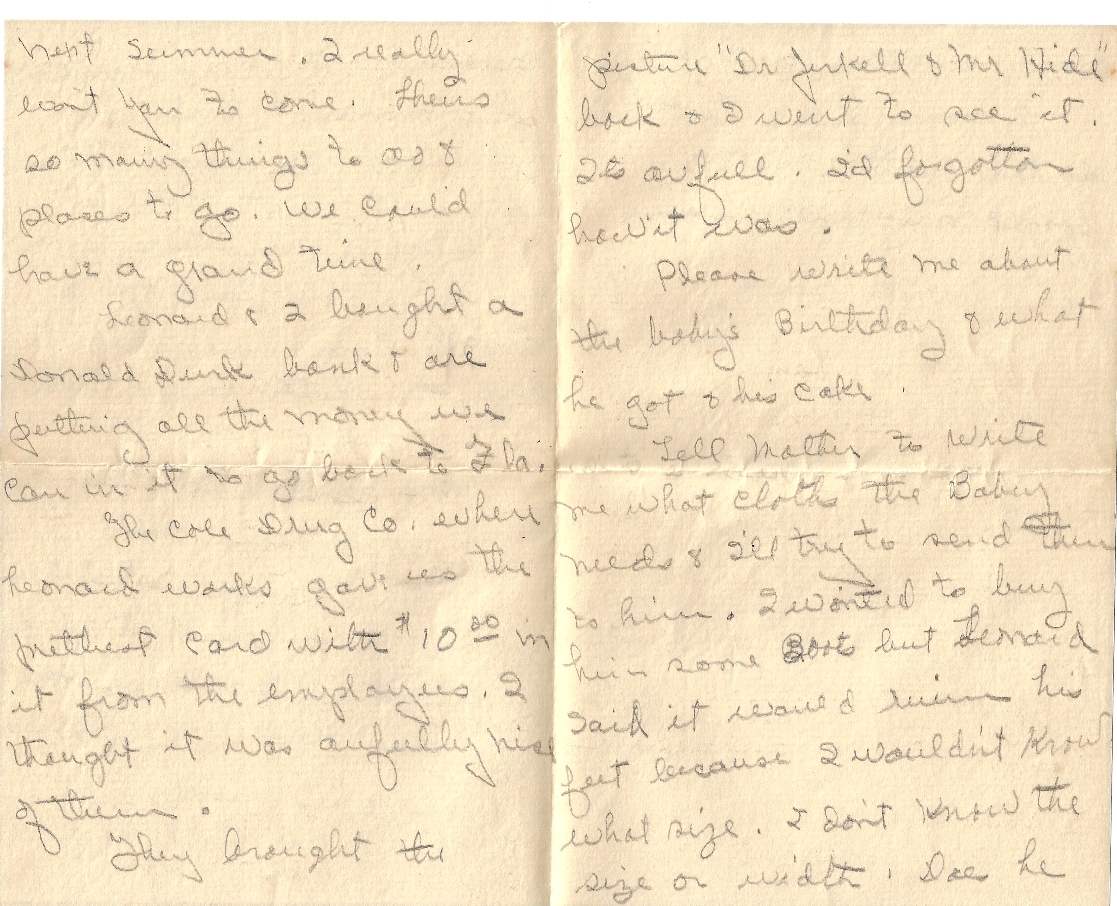 next summer. I really
want you to come. Theirs
so many things to do &
places to go. We could
have a grand time.
Leonard & I bought a
Donald Duck bank & are
putting all the money we
can in it to go back to Fla.
The Cole Drug Co. where
Leonard works gave us the
prettiest card with $10.00 in
it from the employees. I
thought it was awfully nice
of them.
They brought the
picture "Dr Jerkell & Mr Hide"
back & I went to see it.
It's awfull. I'd forgotton
how it was.
Please write me about
the baby's Birthday & what
he got & his cake.
Tell Mother to write
me what cloths the Baby
needs & I'll try to send them
to him. I wanted to buy
him some Boots but Leonard
said it would ruin his
feet because I wouldn't know
what size. I don't know the
size or width. Does he